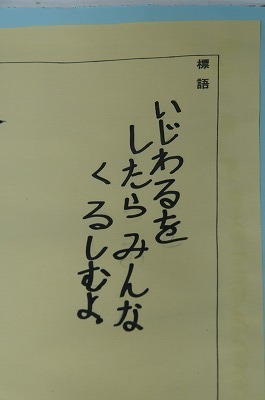 標語
いじわるを
したら みんな
くるしむよ。